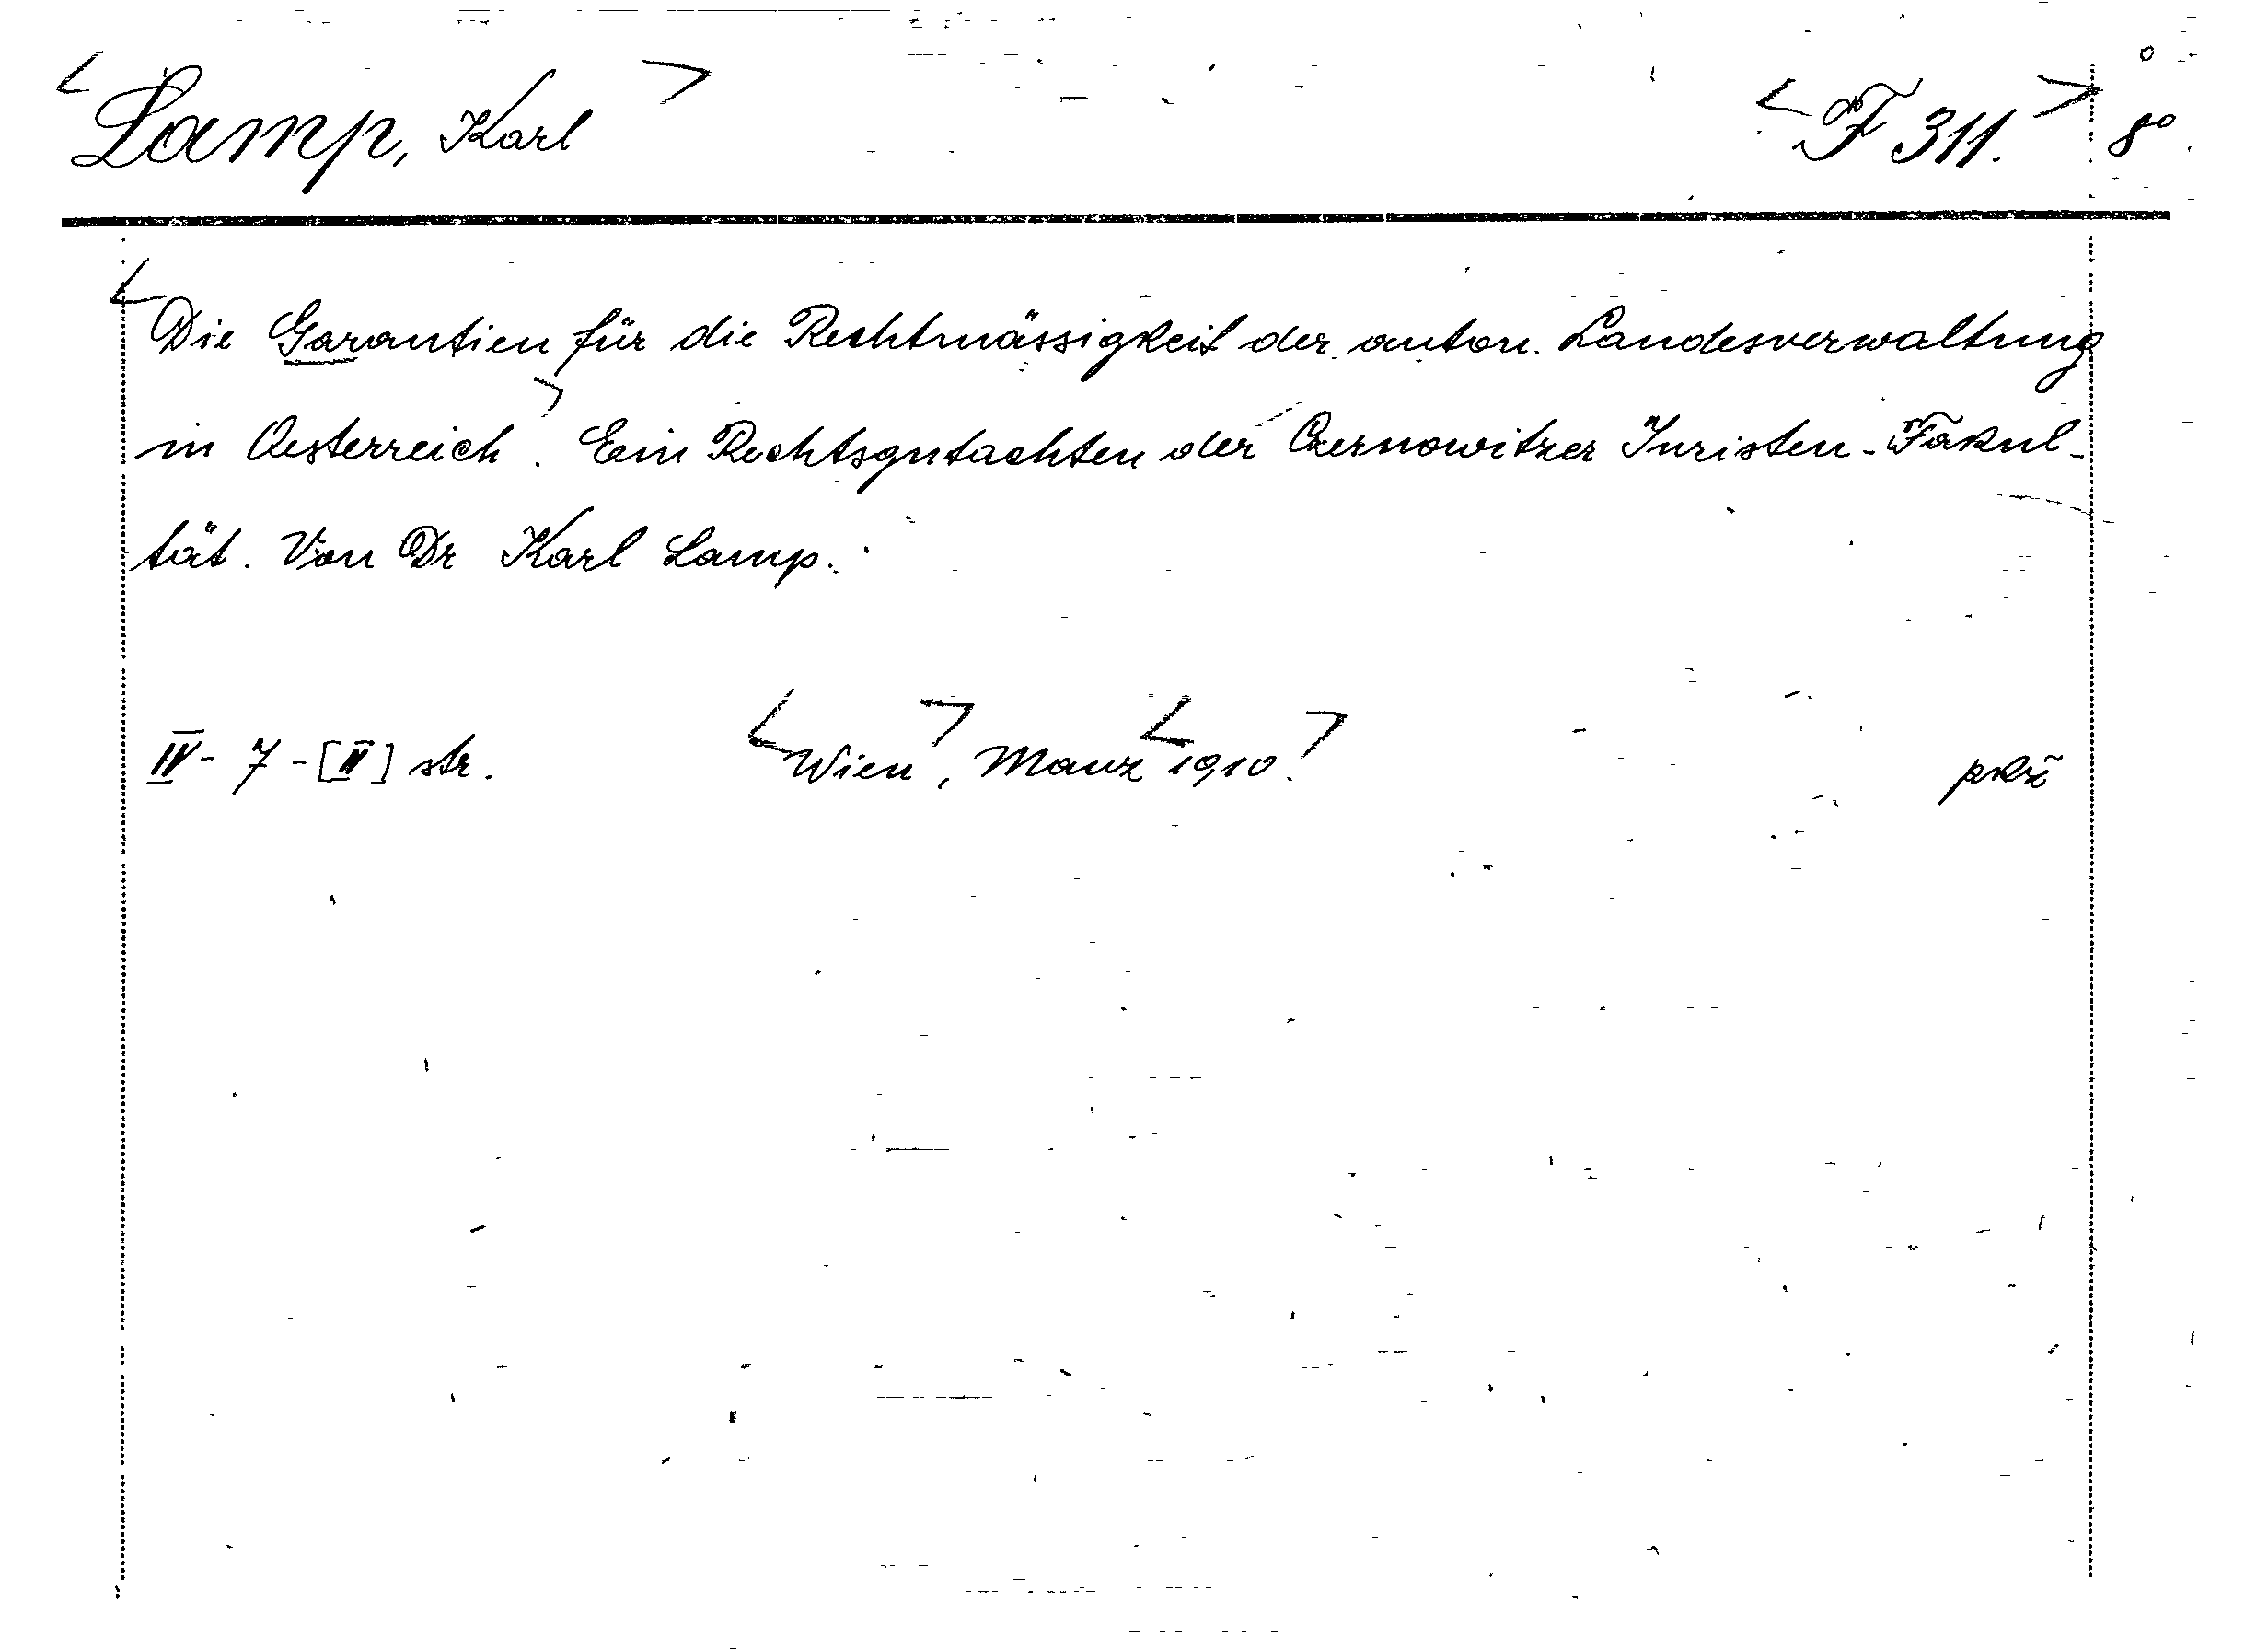 <Lamp, Karl> <F 311.> 8°
<Die Garantien für die Rechtmässigkeit der auton. Landesverwaltung
in Oesterreich>. Ein Rechtsgutachten der Czernowitzer Juristen-Fakul-
tät. Von Dr Karl Lamp.
IV - 7 - [II] str. <Wien>, Manz <1910.> prž